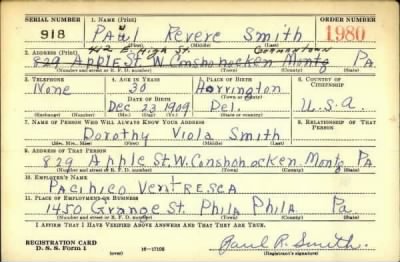 SERIAL NUMBER 1. NAME (Print) ORDER NUMBER
918 Paul Revere Smith 1980
(First) (Middle) (Last)
412 E. High St. Germantown
2. ADDRESS (Print)
829 Apple St. W. Conshohocken Montg Pa.
(Number and street or R. F. D. number) (Town) (County) (State)
3. TELEPHONE 4. AGE IN YEARS 5. PLACE OF BIRTH 6. COUNTRY OF CITIZENSHIP
None 30 Harrington
DATE OF BIRTH (Town or county)
Dec 23 1909 Del. U.S.A
(Exchange) (Number) (Mo.) (Day) (Yr.) (State or country)
7. NAME OF PERSON WHO WILL ALWAYS KNOW YOUR ADDRESS 8. RELATIONSHIP OF THAT PERSON
Dorothy Viola Smith
(Mr., Mrs., Miss) (First) (Middle) (Last)
9. ADDRESS OF THAT PERSON
829 Apple St. W. Conshohocken. Montg Pa.
(Number and street or R. F. D. number) (Town) (County) (State)
10. EMPLOYER'S NAME
Pacihico Ventresca
11. PLACE OF EMPLOYMENT OR BUSINESS
1450 Grange St. Phila Phila. Pa
(Number and street or R. F. D. number) (Town) (County) (State)
I AFFIRM THAT I HAVE VERIFIED ABOVE ANSWERS AND THAT THEY ARE TRUE.
REGISTRATION CARD
D. S. S. Form 1 16—17105 Paul R. Smith.
(Registrant's signature)